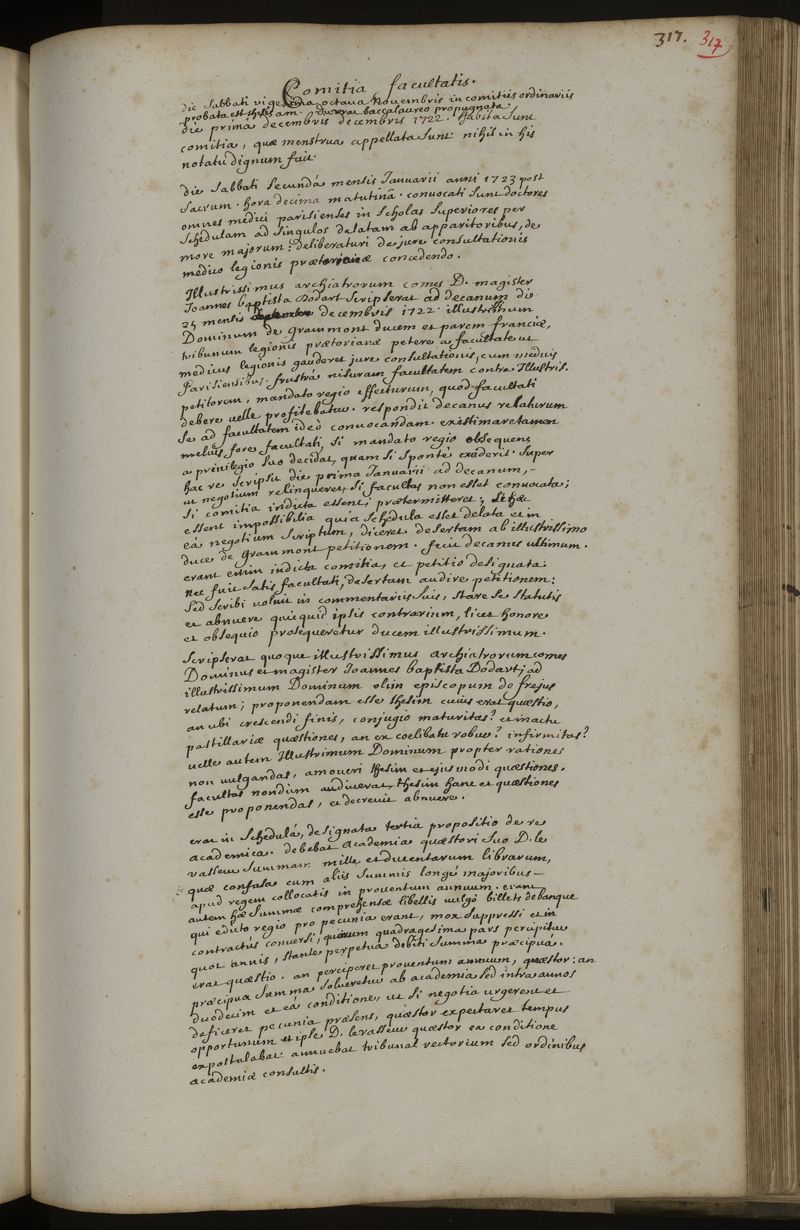 317. 317
Comitia facultatis.
die Sabbati vigesima octava Novembris in comitiis ordinariis
probata est thesis am. baccalaureo propugnata
die prima decembris decembris 1722. habita Sunt
comitia, quæ menstrua appellata Sunt nihil in his
notatu dignum fuit.
die Sabbati Secundâ mensis Januarii anni 1723 post
Sacrum. hora decima matutinâ. convocati Sunt doctores
omnes medici parisienses in Scholas Superiores per
Schedulam ad Singulos delatam ab apparitoribus, de
more majorum: deliberaturi de jure consultationis
medico legionis prætorianæ concedendo.
Illustrissimus archiatrorum comes D. magister
Joannes baptista Dodart Scripserat ad decanum die
25 mensis decembris 1722. illustrissimum
Dominum de grammont ducem et parem franciæ,
tribunum legionis prætorianæ petere a facultate ut
medicus legionis gauderet jure consultationis, cum medicis
Parisiensibus. frustrà nisuram facultatem contra Illustris.
petitorem, mandato regio effecturum, quod facultati
debere velle profitebatur. respondit decanus relaturum
Se ad facultatem ideò convocandam. existimare tamen
meliùs fore facultati, Si mandato regio obsequens
a privilegio Suo decidat, quam Si Sponte exciderit. Super
hac re Scripsit die prima Januarii ad decanum,
ut negotium relinqueret, Si facultas non esset convocata;
Si comitia indicta essent, prætermitteret; Si hæc
essent impossibilia quia Schedula esset delata et in
eâ negotium Scriptum, diceret desertam ab illustrissimo
duce de grammont petitionem. fecit decanus ultimum.
erant enim indicta comitia, et petitio designata.
Nec fuit Satis facultati, desertam audire petitionem:
Sed Scribi voluit in commentariis Suis, Stare Se Statutis
et abnuere quicquid ipsis contrarium, licet honore
et obsequio prosequeretur ducem illustrissimum.
Scripserat quoque illustrissimus archiatrorum comes
Dominus et magister Joannes baptista Dodart, ad
illustrissimum Dominum olim episcopum de frejus
relatum; proponendam esse thesim cuius erat quæstio,
an ubi crescendi finis, conjugio maturitas? et inactu
pastillariæ quæstiones, an ex coelibatu robur? infirmitas?
velle autem Illustrimum Dominum propter rationes
non vulgandas, amoveri thesim et ejusmodi quæstiones.
facultas nondum audiverat, thesim hanc et quæstiones
esse proponendas, et decrevit abnuere.
erat in Schedulâ, designata tertia propositio de re
academica. debebat Academia quæstori Suo D. le
vasseur Summam mille et ducentarum librarum,
quæ confusa cum aliis Summis longè majoribus
apud regem collocatis in proventum annuum. erant
autem hæ Summæ comprehensæ libellis vulgò billets de banque
qui edicto regio pro pecunia erant, mox suppressi et in
contractus conversi, quorum quadragesima pars percipitur
quot annis, Stante perpetua debiti Summa præcipuâ.
erat quæstio. an perciperet proventum annuum, quæstor: an
præcipua Summa Solveretur ab academia Sed intra annos
duodecim et eâ conditione, ut Si negotia urgerent et
deficeret pecunia præsens, quæstor expectaret tempus
opportunum et ipse D. levasseur quæstor ea conditione
expostulabat. annuebat tribunal rectorium Sed ordinibus
academiæ consultis.